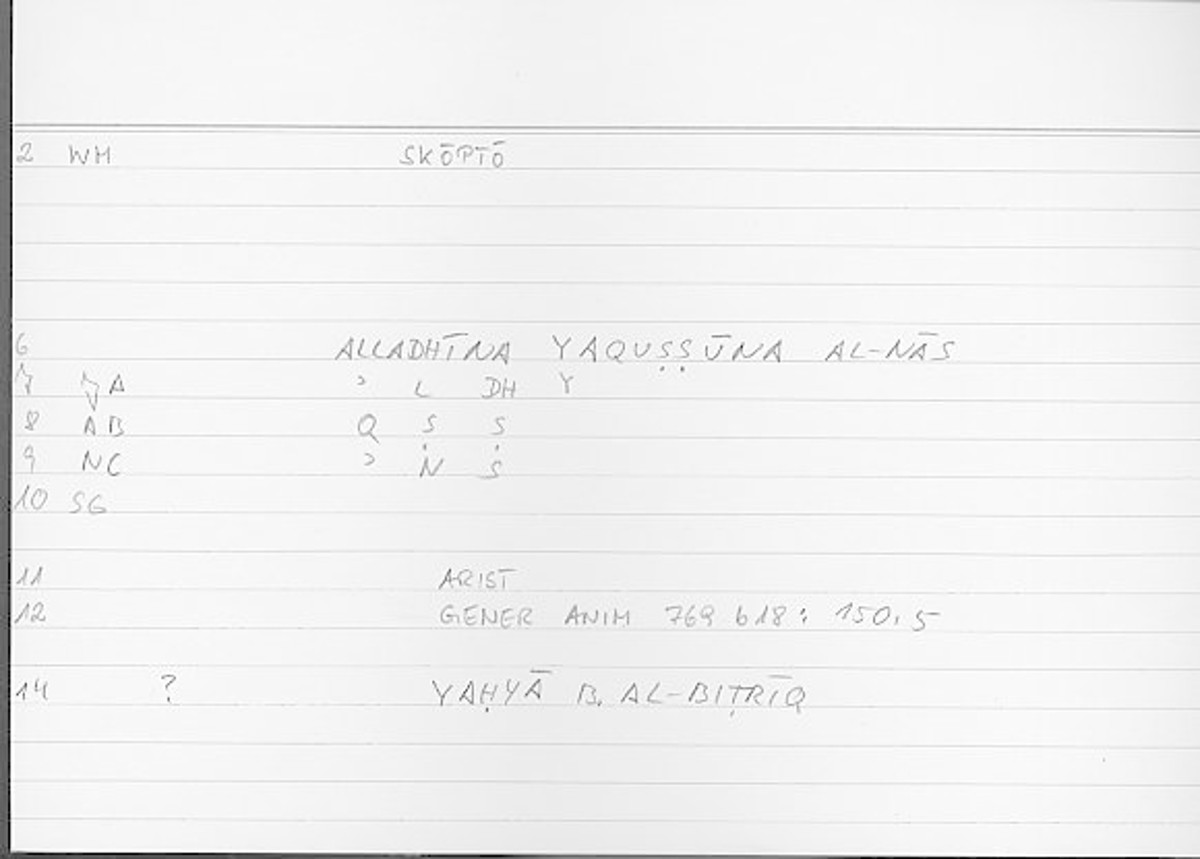 2 WH SKŌPTŌ
6 ALLADHĪNA YAQUṢṢŪNA AL-NĀS
7 A ʾ L DH Y
8 AB Q Ṣ Ṣ
9 NC ʾ N S
10 SG
11 ARIST
12 GENER ANIM 769 b18: 150.5
14 ? YAḤYĀ B. AL-BIṬRĪQ